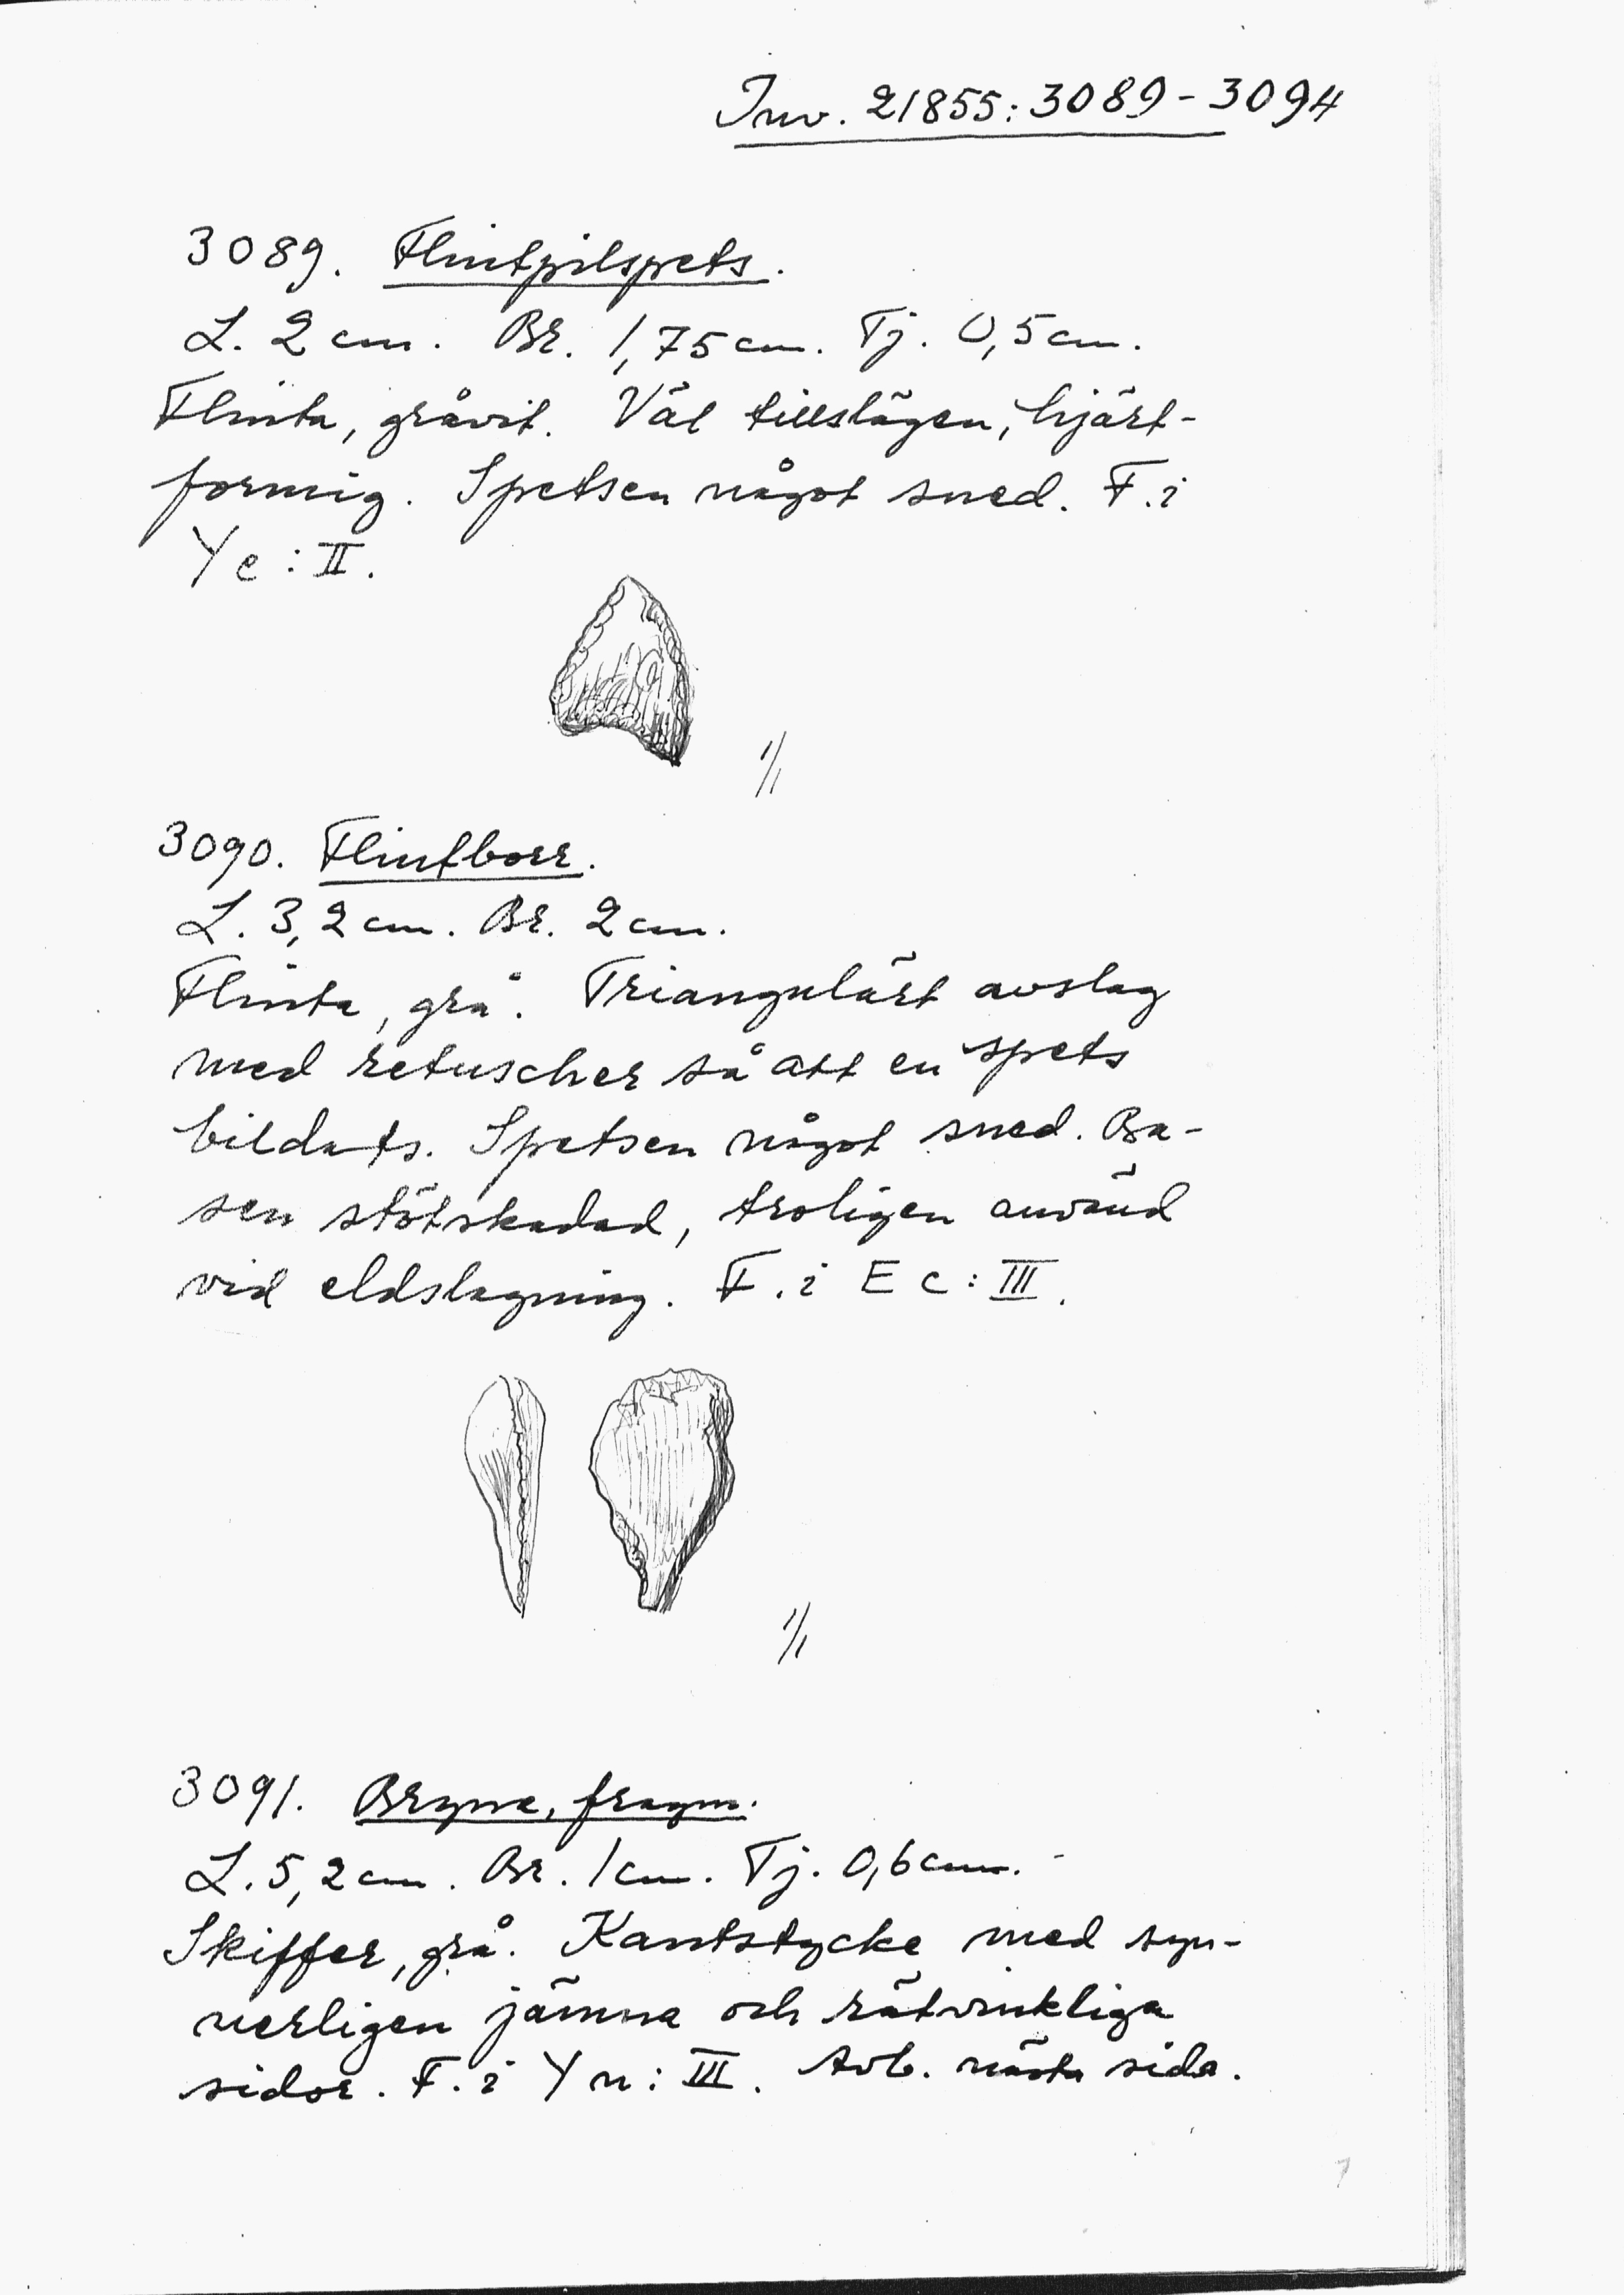 Inv. 21855:3089-3094
3089. Flintpilspets.
L. 2 cm. Br. 1,75 cm. Tj. 0,5 cm.
Flinta, gråvit. Väl tillslagen, hjärt-
formig. Spetsen något sned. F. i
Y e : II.
1/1
3090. Flintborr.
L. 3,2 cm. Br. 2 cm.
Flinta, grå. Triangulärt avslag
med retuscher så att en spets
bildats. Spetsen något sned. Ba-
sen stötskadad, troligen använd
vid eldslagning. F. i E c : III.
1/1
3091. Bryne, fragm.
L. 5,2 cm. Br. 1 cm. Tj. 0,6 cm.
Skiffer, grå. Kantstycke med syn-
nerligen jämna och rätvinkliga
sidor. F. i Y n : III. Avb. nästa sida.